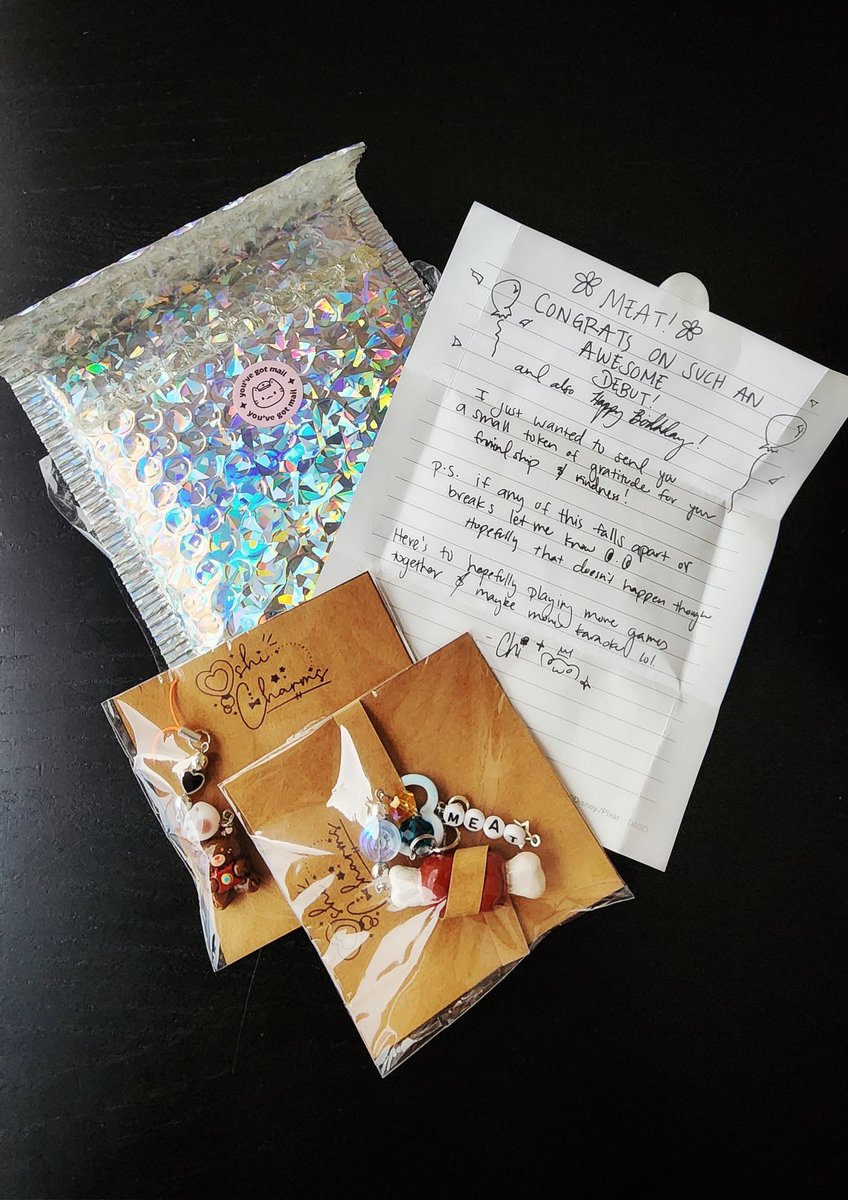 you've got mail
you've got mail
MEAT!
CONGRATS ON SUCH AN
AWESOME
DEBUT!
and also Happy Birthday!
I just wanted to send you
a small token of gratitude for your
friendship & kindness!
p.s. if any of this falls apart or
breaks let me know
Hopefully that doesn't happen though
Here's to hopefully playing more games
together & maybe more karaoke lol.
- Chi
Disney/Pixar DAISO
Oshi
Charms
MEAT
Oshi
Charms